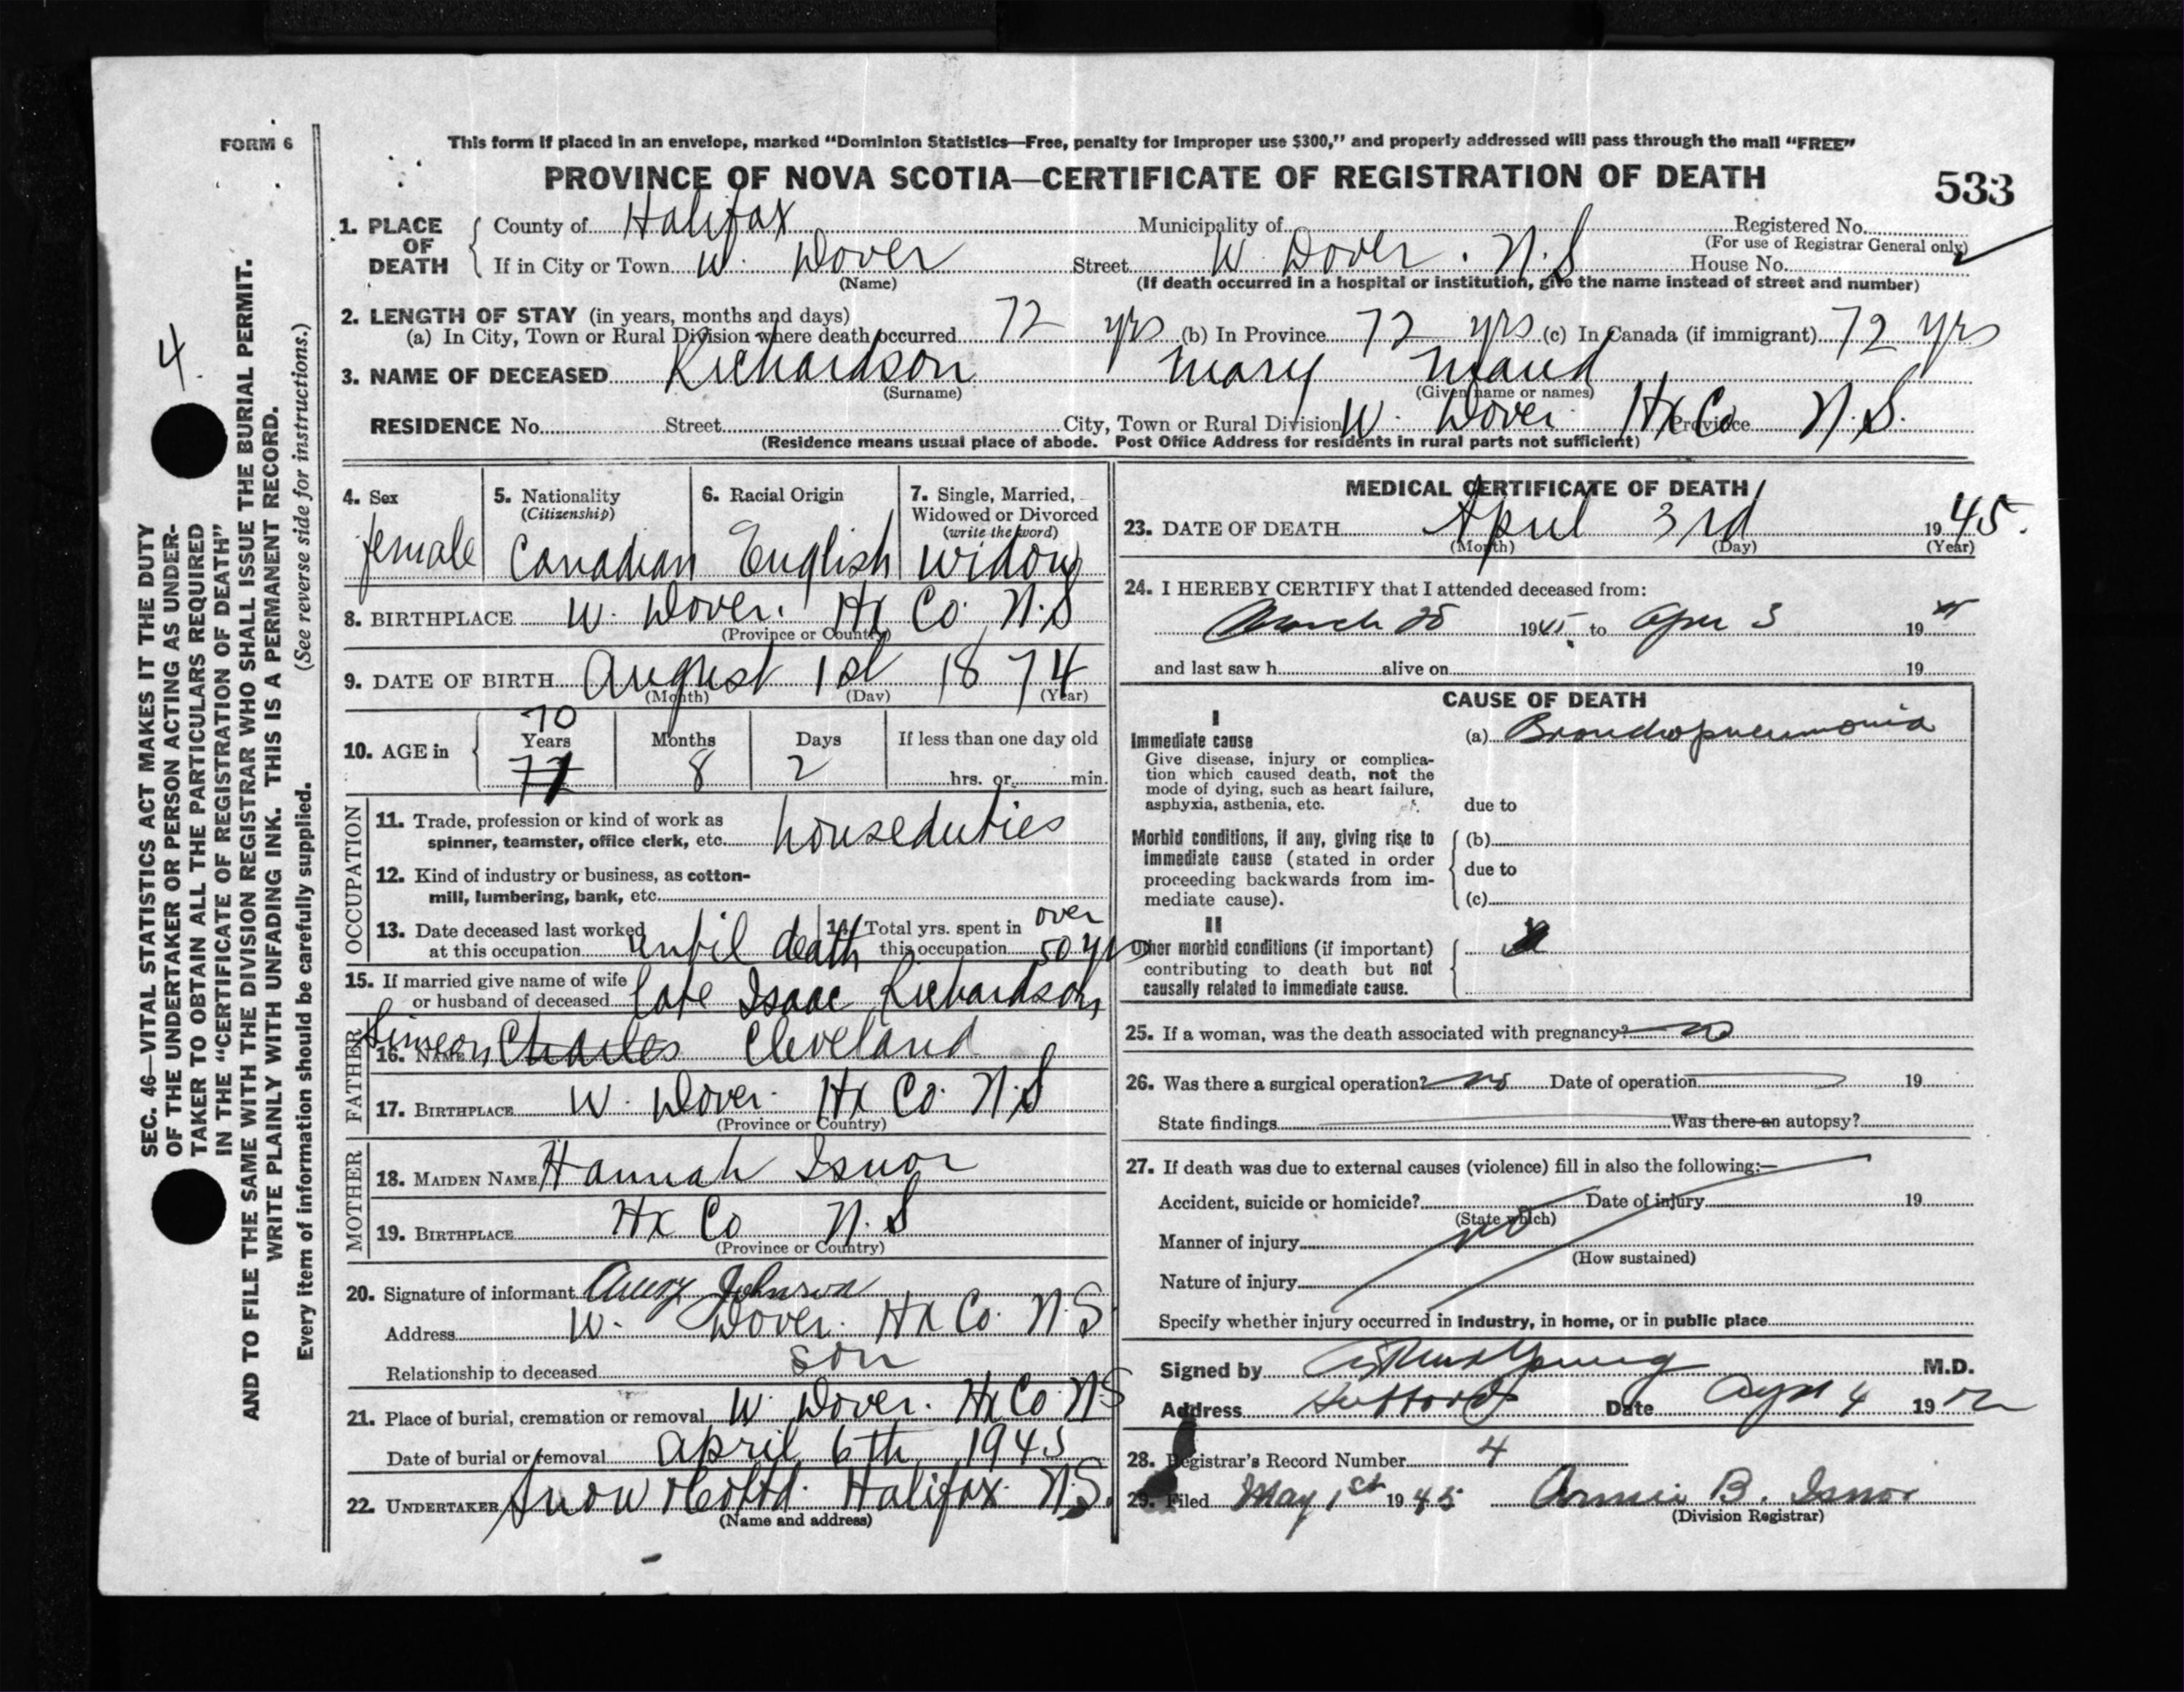 FORM 6
This form if placed in an envelope, marked "Dominion Statistics—Free, penalty for improper use $300," and properly addressed will pass through the mail "FREE"
PROVINCE OF NOVA SCOTIA—CERTIFICATE OF REGISTRATION OF DEATH
533
1. PLACE OF DEATH County of Halifax Municipality of Registered No.
(For use of Registrar General only)
If in City or Town W. Dover Street W Dover. N.S House No.
(Name) (If death occurred in a hospital or institution, give the name instead of street and number)
2. LENGTH OF STAY (in years, months and days)
(a) In City, Town or Rural Division where death occurred 72 yrs (b) In Province 72 yrs (c) In Canada (if immigrant) 72 yrs
3. NAME OF DECEASED Richardson Mary Maud
(Surname) (Given name or names)
RESIDENCE No. Street City, Town or Rural Division W. Dover Hx Co Province N.S.
(Residence means usual place of abode. Post Office Address for residents in rural parts not sufficient)
4. Sex 5. Nationality 6. Racial Origin 7. Single, Married,
(Citizenship) Widowed or Divorced
(write the word)
female Canadian English widow
8. BIRTHPLACE W. Dover. Hx Co. N.S
(Province or Country)
9. DATE OF BIRTH August 1st 1874
(Month) (Day) (Year)
70
10. AGE in Years Months Days If less than one day old
8 2 hrs. or min.
OCCUPATION
11. Trade, profession or kind of work as
spinner, teamster, office clerk, etc. houseduties
12. Kind of industry or business, as cotton-
mill, lumbering, bank, etc.
13. Date deceased last worked 14. Total yrs. spent in over
at this occupation until death this occupation 50 yrs
15. If married give name of wife
or husband of deceased late Isaac Richardson
FATHER
16. NAME Simeon Charles Cleveland
17. BIRTHPLACE W. Dover. Hx Co. N.S
(Province or Country)
MOTHER
18. MAIDEN NAME Hannah Isnor
19. BIRTHPLACE Hx Co N.S
(Province or Country)
20. Signature of informant Johnson
Address W. Dover. Hx Co. N.S
Relationship to deceased son
21. Place of burial, cremation or removal W. Dover. Hx Co N.S
Date of burial or removal april 6th 1945
22. UNDERTAKER Snow & Co Ltd. Halifax N.S.
(Name and address)
MEDICAL CERTIFICATE OF DEATH
23. DATE OF DEATH April 3rd 1945.
(Month) (Day) (Year)
24. I HEREBY CERTIFY that I attended deceased from:
March 1945 to Apr 3 19
and last saw h alive on 19
CAUSE OF DEATH
I
Immediate cause (a) Bronchopneumonia
Give disease, injury or complica-
tion which caused death, not the
mode of dying, such as heart failure,
asphyxia, asthenia, etc. due to
Morbid conditions, if any, giving rise to (b)
immediate cause (stated in order
proceeding backwards from im- due to
mediate cause). (c)
II
Other morbid conditions (if important)
contributing to death but not
causally related to immediate cause.
25. If a woman, was the death associated with pregnancy? no
26. Was there a surgical operation? no Date of operation 19
State findings Was there an autopsy?
27. If death was due to external causes (violence) fill in also the following:—
Accident, suicide or homicide? Date of injury 19
(State which)
Manner of injury no
(How sustained)
Nature of injury
Specify whether injury occurred in industry, in home, or in public place
Signed by Young M.D.
Address Date Apr 4 19
28. Registrar's Record Number 4
29. Filed May 1st 1945 Annie B. Isnor
(Division Registrar)
4.
SEC. 46—VITAL STATISTICS ACT MAKES IT THE DUTY
OF THE UNDERTAKER OR PERSON ACTING AS UNDER-
TAKER TO OBTAIN ALL THE PARTICULARS REQUIRED
IN THE "CERTIFICATE OF REGISTRATION OF DEATH"
AND TO FILE THE SAME WITH THE DIVISION REGISTRAR WHO SHALL ISSUE THE BURIAL PERMIT.
WRITE PLAINLY WITH UNFADING INK. THIS IS A PERMANENT RECORD.
Every item of information should be carefully supplied. (See reverse side for instructions.)